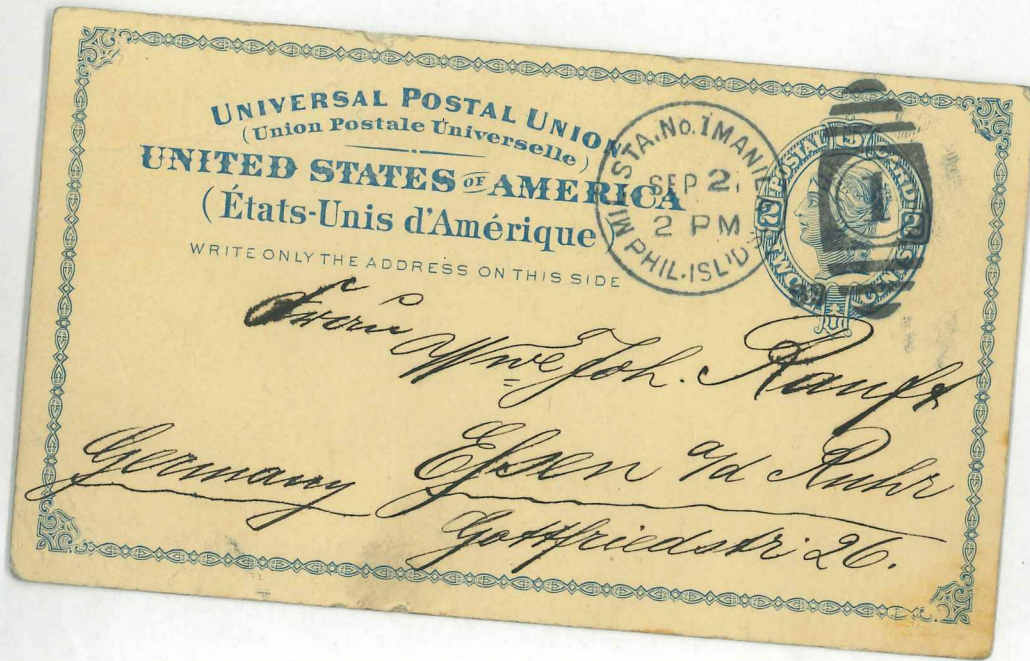 UNIVERSAL POSTAL UNION
(Union Postale Universelle)
UNITED STATES OF AMERICA
(États-Unis d'Amérique)
WRITE ONLY THE ADDRESS ON THIS SIDE
MIL. STA. No. 1 MANIL
PHIL. ISL'DS
SEP 2
2 PM
POSTAL CARD
2 2
TWO CENTS
1
Wwe Joh. Ranft
Essen a/d Ruhr
Germany
Gottfriedstr. 26.